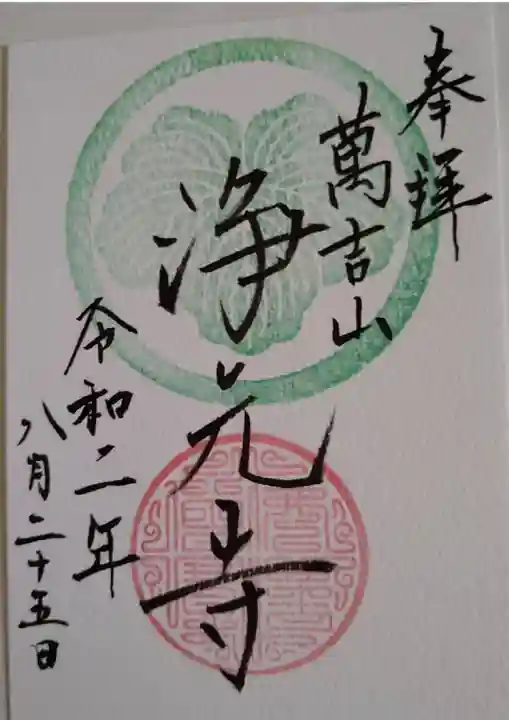 奉拝
萬吉山
浄元寺
令和二年
八月二十五日